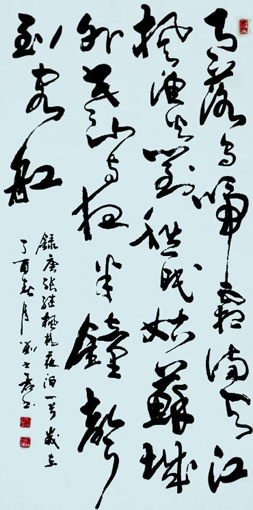 月落烏啼霜滿天江
楓漁火對愁眠姑蘇城
外寒山寺夜半鐘聲
到客船
錄唐張繼楓橋夜泊一首歲在
丁酉秋月